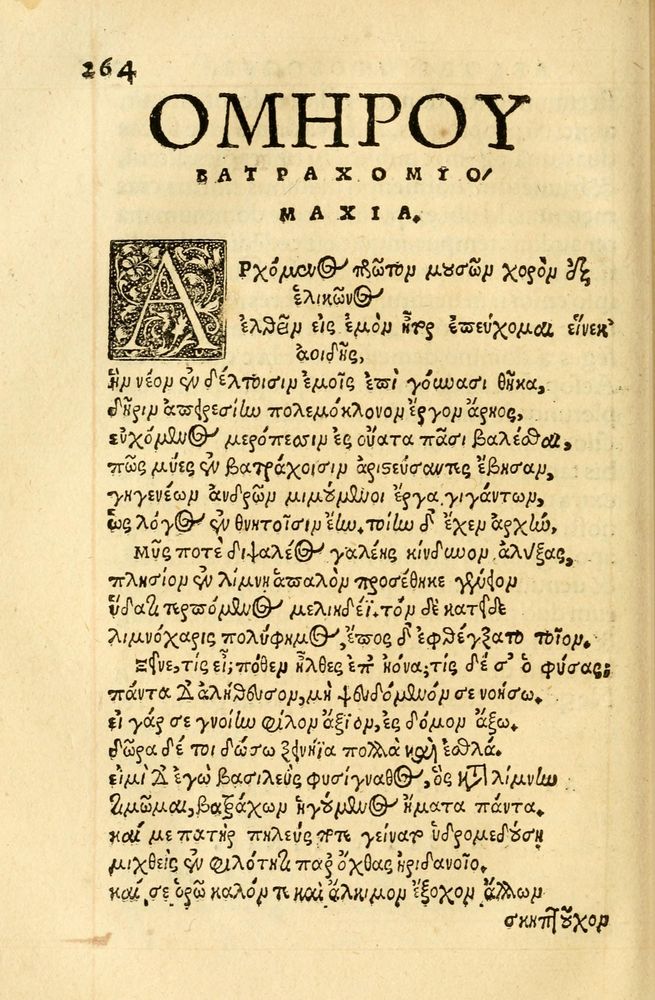 264
ΟΜΗΡΟΥ
ΒΑΤΡΑΧΟΜΥΟ-
ΜΑΧΙΑ.
ΑΡχόμενος πρῶτον μουσῶν χορὸν ἐξ
ἑλικῶνος
ἐλθεῖν εἰς ἐμὸν ἦτορ ἐπεύχομαι εἵνεκ'
ἀοιδῆς,
ἣν νέον ἐν δέλτοισιν ἐμοῖς ἐπὶ γούνασι θῆκα,
δῆριν ἀπειρεσίην πολεμόκλονον ἔργον ἄρηος,
εὐχόμενος μερόπεσσιν ἐς οὔατα πᾶσι βαλέσθαι,
πῶς μύες ἐν βατράχοισιν ἀριστεύσαντες ἔβησαν,
γηγενέων ἀνδρῶν μιμούμενοι ἔργα γιγάντων,
ὡς λόγος ἐν θνητοῖσιν ἔην. τοίην δ' ἔχεν ἀρχὴν,
Μῦς ποτὲ διψαλέος γαλέης κίνδυνον ἀλύξας,
πλησίον ἐν λίμνῃ ἁπαλὸν προσέθηκε γένειον
ὕδατι τερπόμενος μελιηδέϊ. τὸν δὲ κατεῖδε
λιμνόχαρις πολύφημος, ἔπος δ' ἐφθέγξατο τοῖον.
Ξεῖνε, τίς εἶ; πόθεν ἦλθες ἐπ' ἠϊόνα; τίς δέ σ' ὁ φύσας;
πάντα δ' ἀλήθευσον, μὴ ψευδόμενόν σε νοήσω.
εἰ γάρ σε γνοίην φίλον ἄξιον, ἐς δόμον ἄξω.
δῶρα δέ τοι δώσω ξεινήϊα πολλὰ καὶ ἐσθλά.
εἰμὶ δ' ἐγὼ βασιλεὺς φυσίγναθος, ὃς κατὰ λίμνην
τιμῶμαι, βατράχων ἡγούμενος ἤματα πάντα.
καί με πατὴρ πηλεὺς ποτε γείνατο ὑδρομεδούσῃ
μιχθεὶς ἐν φιλότητι παρ' ὄχθας ἠριδανοῖο.
καί σε ὁρῶ καλόν τε καὶ ἄλκιμον ἔξοχον ἄλλων
σκηπτοῦχον